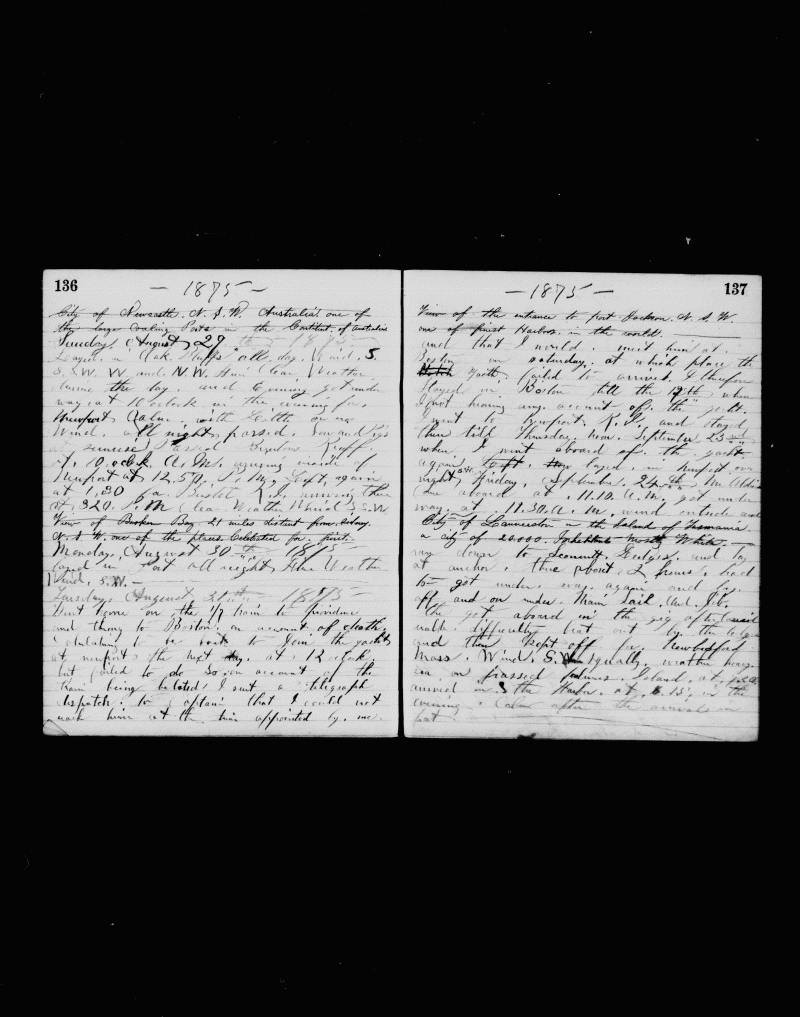 136
— 1875 —
City of Newcastle. N. S. W. Australia. one of
the large Coaling Ports in the Continent, of Australia
Sunday, August 29th 1875
in Oak Bluffs all day. Wind. S.
S. S. W. W. and. N. W. Fair Clear Weather
during the day and Evening got under
way at 10 oclock in the evening for
Newport Calm. with little or no
Wind. all night, passed.
at sunrise passed Reef
at. 10. oclock A. M. arriving inside of
Newport at 12,50. P. M, left, again
at 1,30 for Bristol R. I. arriving there
at, 3.20. P. M Clear Weather Wind S. S. W
View of Broken Bay 21 miles distant from Sidney.
N. S. W. one of the places Celebrated for. fruit.
Monday, August 30th 1875
layed in Port all night fine Weather
Wind, S. W. —
Tuesday, August 31st 1875
Went home on the train to Providence
and thence to Boston. on account of death.
to Join the yacht
at newport the next day. at 12 oclock
but failed to do so on account of the
train being belated, I sent a telegraph
dispatch. to Captain that I could not
him at the time appointed by. me.
137
— 1875 —
View of the entrance to port Jackson. N. S. W.
one of finest Harbors. in the world.
and that I would. meet him at.
Boston on saturday. at which place the
Yacht failed to arrived. I therefore
stayed in Boston till the 19th when
not hearing any account of. the yacht.
I went to Newport, R. I. and stayed
there till Thursday, noon. September 23rd
when I went aboard of. the yacht
again, layed. in newport, over
night, Friday, September. 24th Mr
Came aboard at. 11.10. A. M. got under
way. at. 11.30. A. M. wind outside and
City of Launceston in the Island of Tasmania.
a city of 20.000. Inhabitants mostly White. —
down to and lay
at anchor. there about 2 hours, had
to got under. way. again and lay
off and on under. Main Sail. And. Jib.
We got aboard in the gig after
with difficulty beat out by. the
and then kept off for. New bedford
Mass. Wind, S. W. Squally. weather heavy
sea. on passed Island. at.
arrived in the Harbor. at. in the
evening. Calm after the arrival in
port.